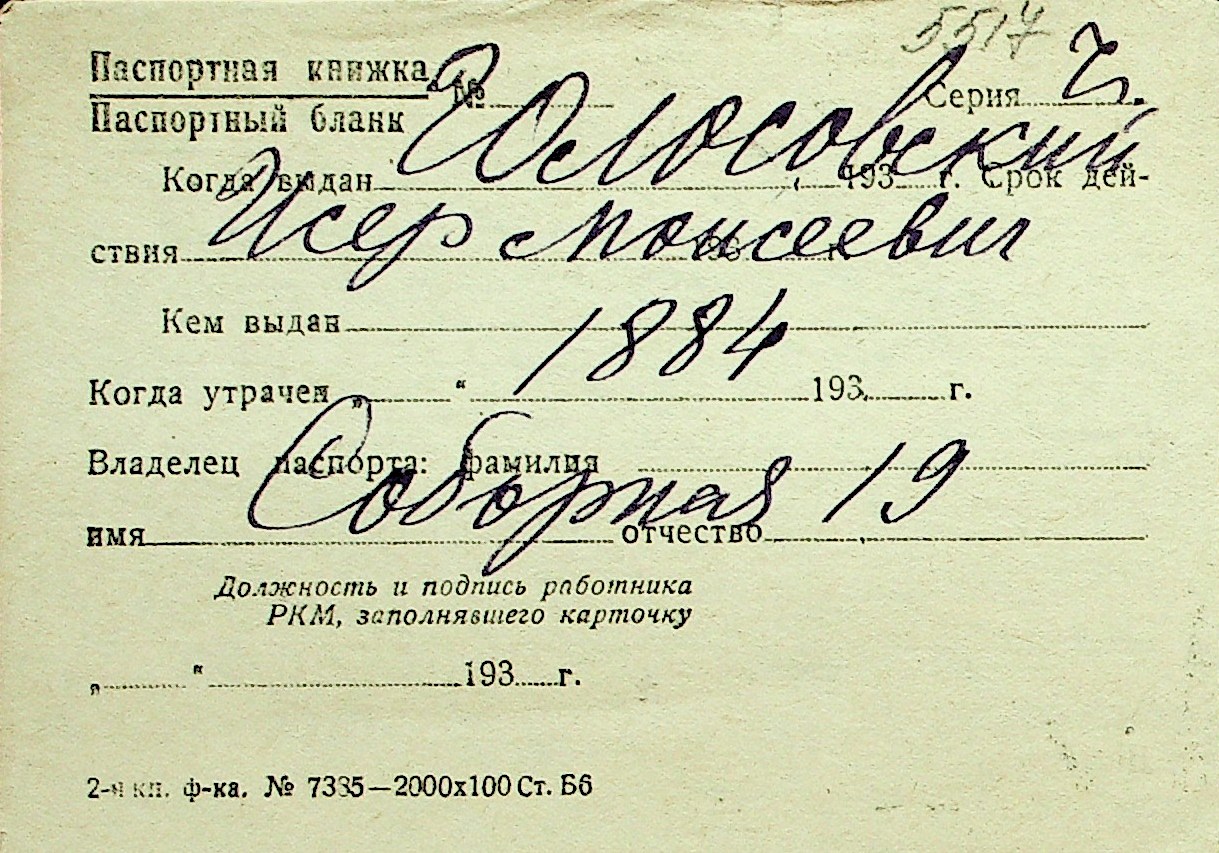 5517
Паспортная книжка № Серия
Паспортный бланк
Голосовский
Когда выдан 193 г. Срок дей-
Исер Моисеевич
ствия 193 г.
Кем выдан
1884
Когда утрачен „ “ 193 г.
Владелец паспорта: фамилия
Соборная 19
имя отчество
Должность и подпись работника
РКМ, заполнявшего карточку
„ “ 193 г.
2-я кн. ф-ка. № 7385—2000х100 Ст. Б6